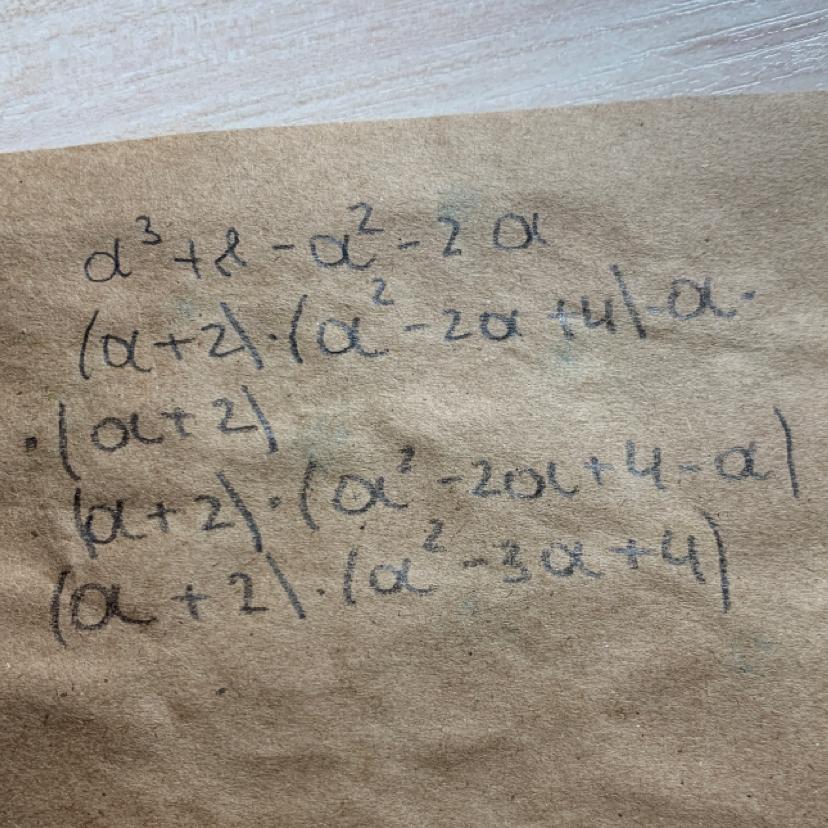 a³+8-a²-2a
(a+2)·(a²-2a+4)-a·
·(a+2)
(a+2)·(a²-2a+4-a)
(a+2)·(a²-3a+4)